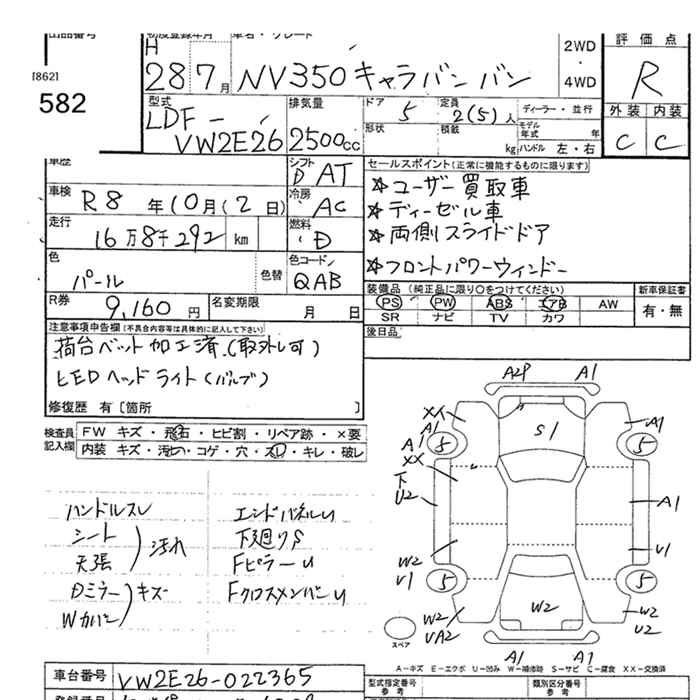 出品番号
[862]
582
初度登録年月 車名・グレード
H 28 7月 NV350キャラバン バン
2WD
・
4WD
評価点
R
型式
LDF-
VW2E26
排気量
2500cc
ドア 5
定員 2(5)人
ディーラー・並行
形状
積載 kg
モデル年式 年
ハンドル 左・右
外装 内装
C C
車歴
シフト D AT
車検 R8年10月(2日)
冷房 AC
走行 16万8千292km
燃料 D
色 パール 色替
色コード QAB
R券 9,160円
名変期限 月 日
セールスポイント(正常に機能するものに限ります)
☆ユーザー買取車
☆ディーゼル車
☆両側スライドドア
☆フロントパワーウィンドー
装備品 (純正品に限り○をつけてください)
PS PW ABS エアB AW
SR ナビ TV カワ
新車保証書
有・無
後日品
注意事項申告欄(不具合内容等は具体的に記入して下さい)
荷台ベット加工済(取外し可)
LEDヘッドライト(バルブ)
修復歴 有 [箇所 ]
検査員記入欄
FW キズ・飛石・ヒビ割・リペア跡・×要
内装 キズ・汚れ・コゲ・穴・スレ・キレ・破レ
ハンドルスレ
シート
天張
汚れ
Dミラー
Wカバー
キズ
エンドパネルU
下廻りS
FピラーU
FクロスメンバーU
A29 A1
XX
A1
S1
A1
5 5
A1
XX
下
U2
A1
W2
V1
V1
5 5
W2
UA2
W2
W2
U2
A1 A1
スペア
A-キズ E-エクボ U-凹み W-補修跡 S-サビ C-腐食 XX-交換済
車台番号 VW2E26-022365
型式指定番号
参考
類別区分番号
参考
登録番号